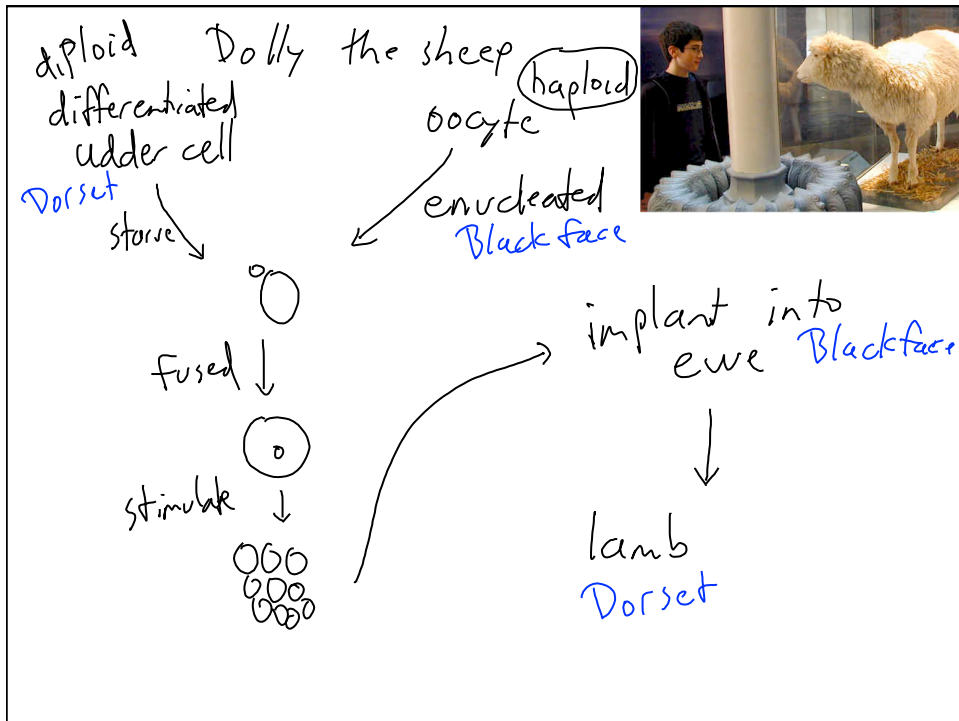 Dolly the sheep
diploid
differentiated
udder cell
Dorset
starve
haploid
oocyte
enucleated
Blackface
fused
stimulate
implant into
ewe Blackface
lamb
Dorset